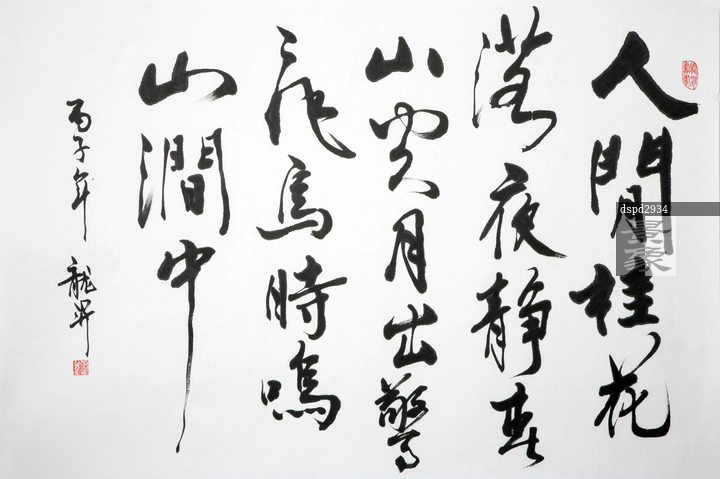 人閒桂花
落夜靜春
山空月出驚
飛鳥時鳴
山澗中
丙子年 龍
dspd2934